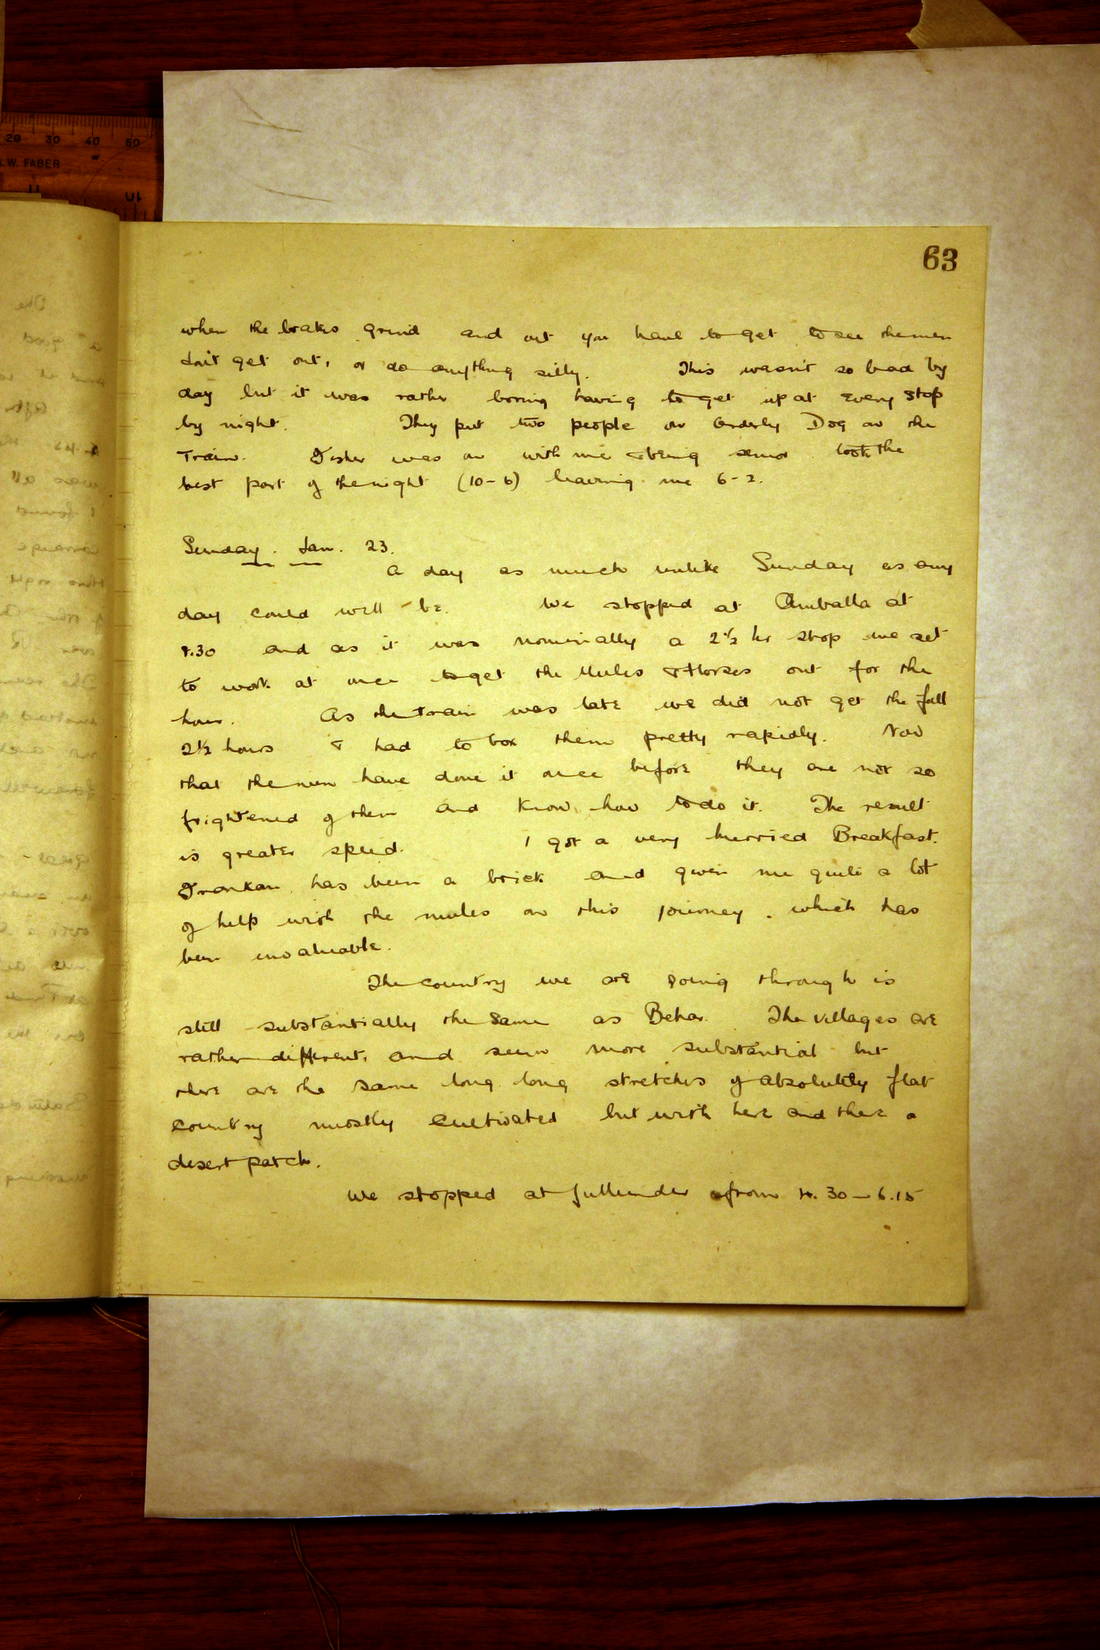 63
when the brakes grind and out you have to get to see the men
don't get out, or do anything silly. This wasn't so bad by
day but it was rather boring having to get up at every stop
by night. They put two people on Orderly Dog on the
Train. was on with me & being senior took the
best part of the night (10-6) leaving me 6-2.
Sunday. Jan. 23.
A day as much unlike Sunday as any
day could well be. We stopped at Umballa at
.30 and as it was nominally a 2½ hr stop we set
to work at once to get the Mules & Horses out for the
hour. As the train was late we did not get the full
2½ hours & had to box them pretty rapidly. Now
that the men have done it once before they are not so
frightened of them and know how to do it. The result
is greater speed. I got a very hurried Breakfast.
has been a brick and given me quite a lot
of help with the mules on this journey. which has
been invaluable.
The country we are going through is
still substantially the same as Behar. The villages are
rather different, and seem more substantial but
there are the same long long stretches of absolutely flat
country mostly cultivated but with here and there a
desert patch.
We stopped at Jullunder from 4.30-6.15
20 30 40 50
W. FABER